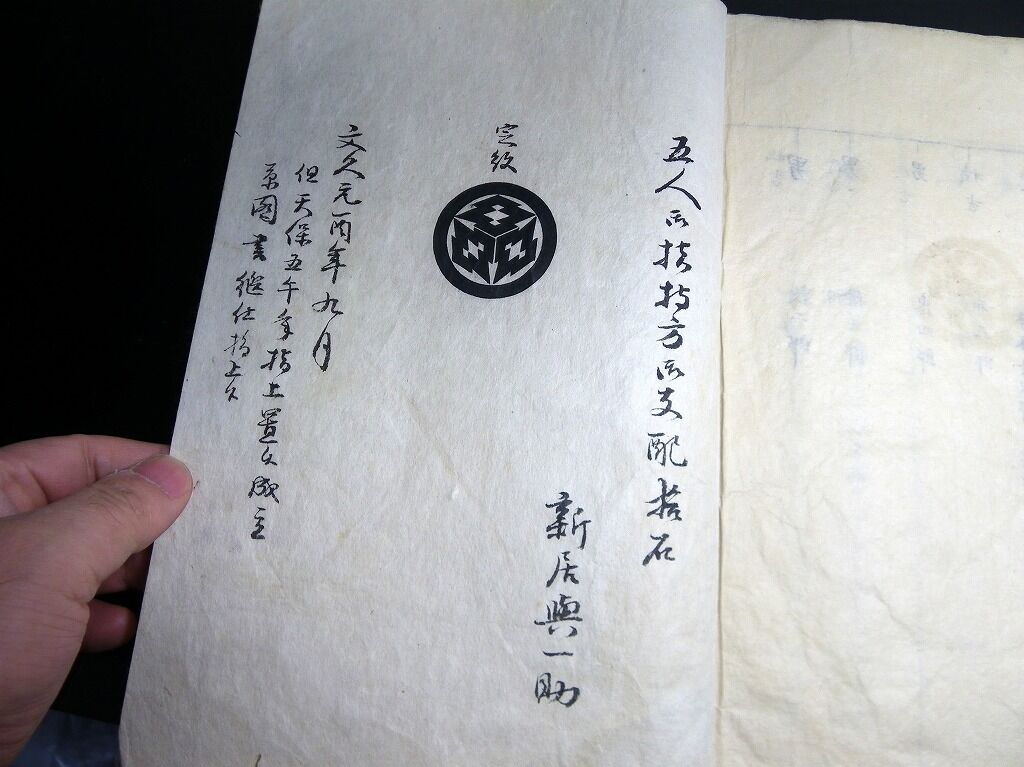 五人御扶持方御支配拾石
新居與一助
定紋
文久元酉年九月
但天保五午年指上置久成
系圖書継仕指上